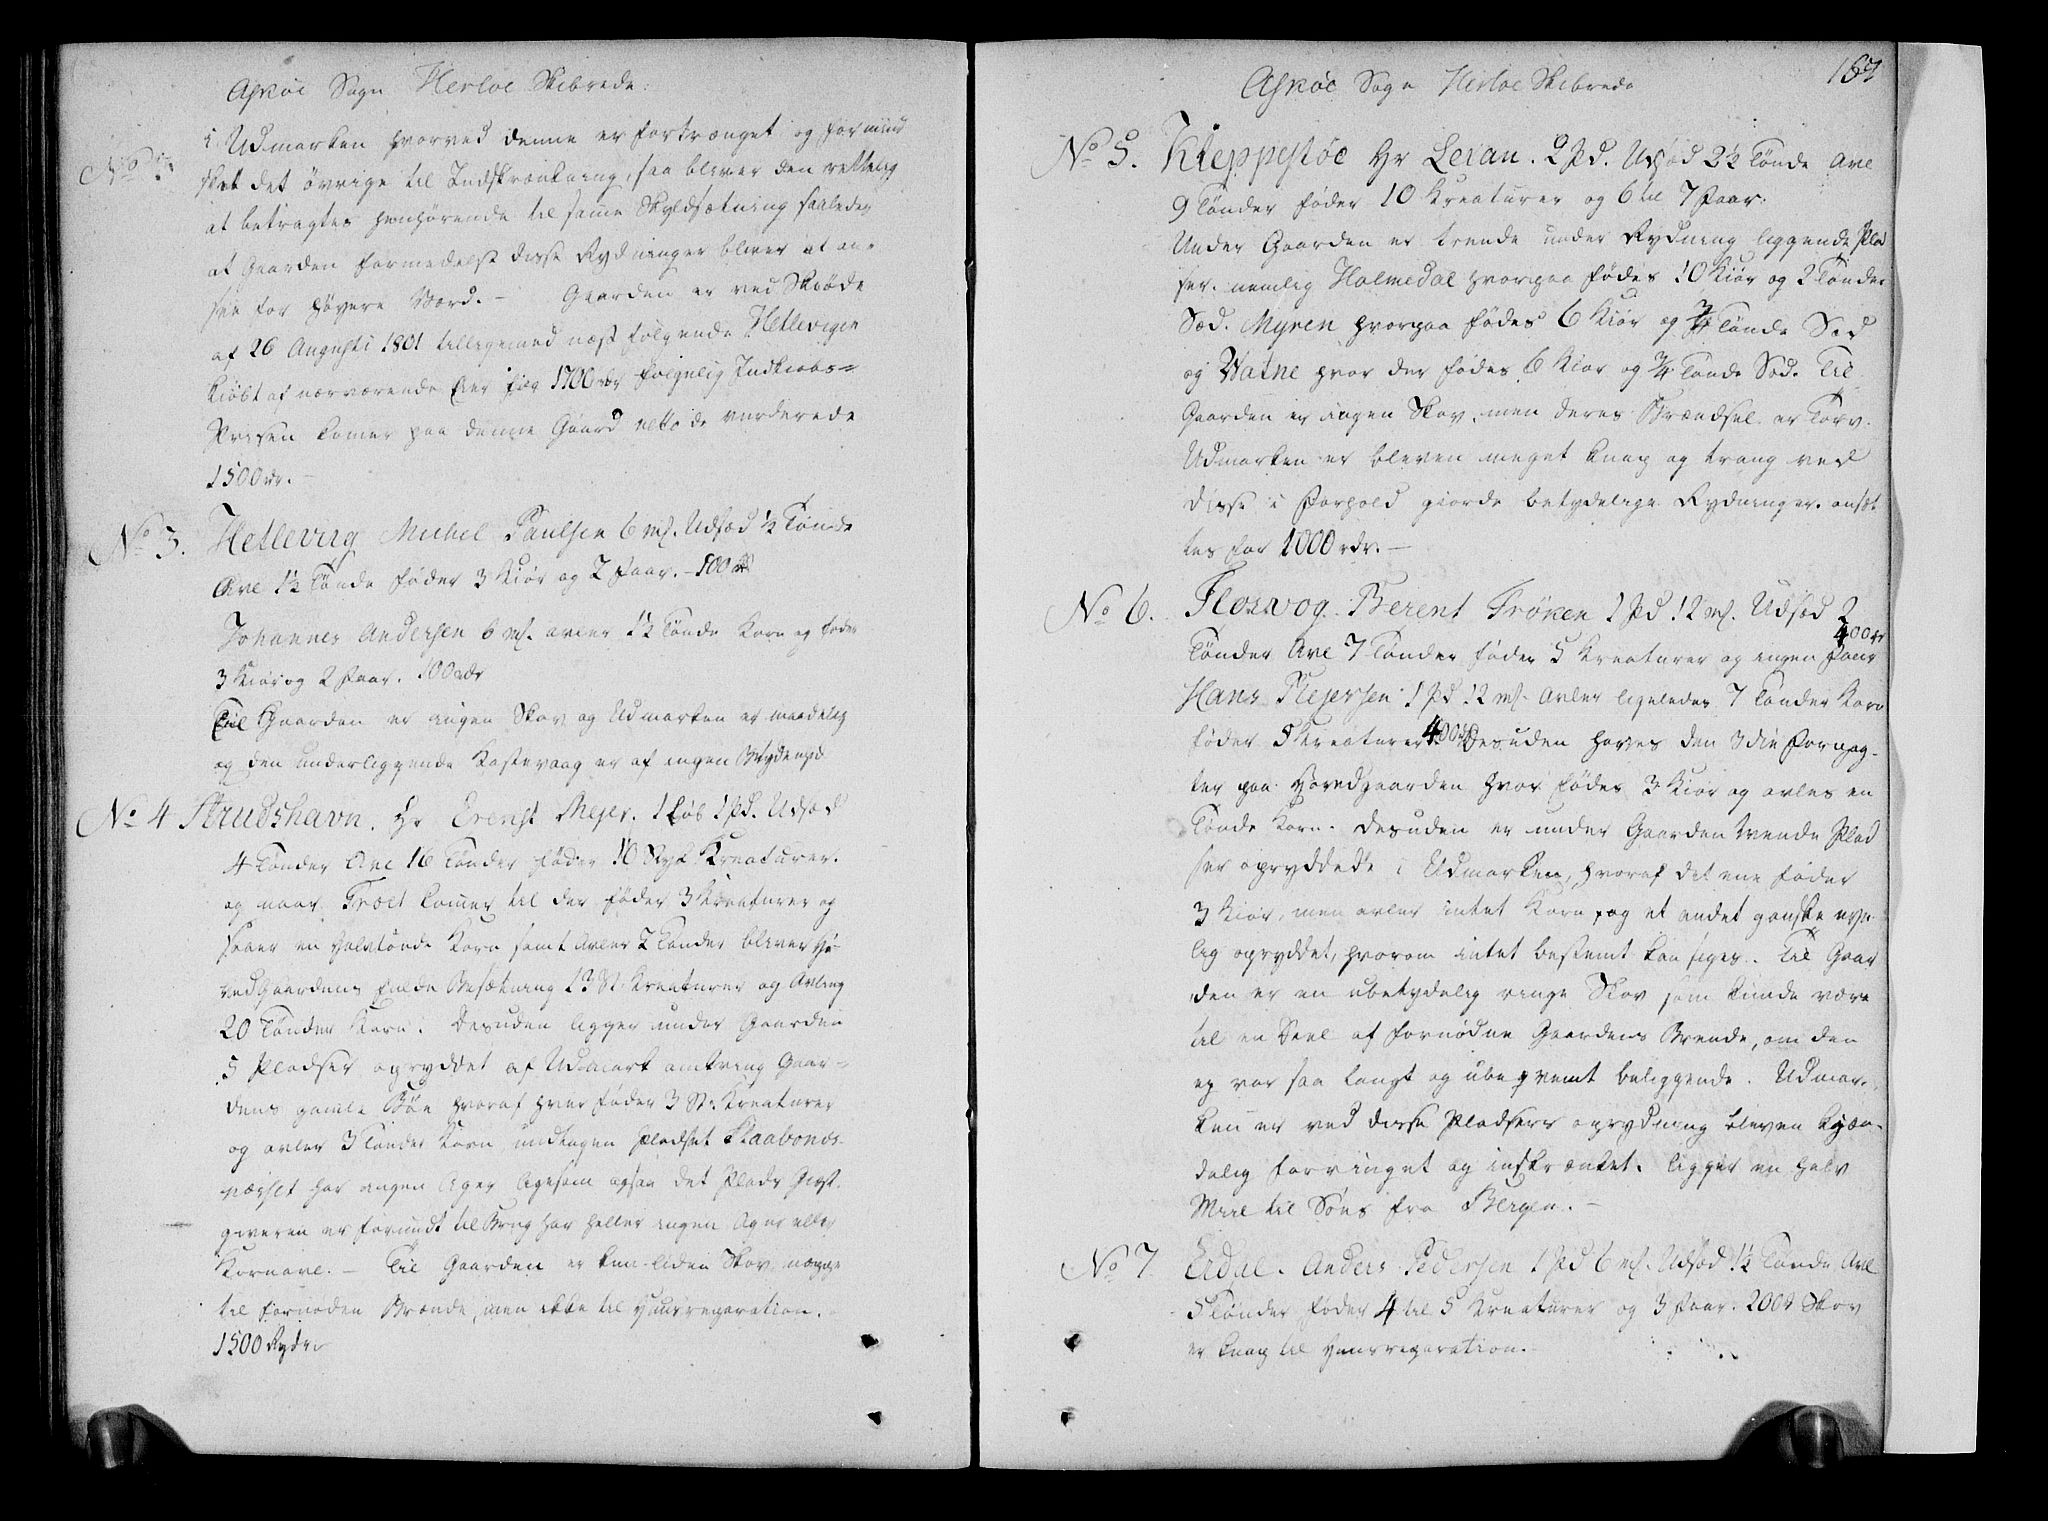 Askøe Sogn Herløe Skibrede.
i Udmarken hvorved denne er fortrænget og formind
sket det øvrige til Indskrænkning, saa bliver den rettelig
at betragtes henhørende til samme Skyldsætning saaledes
at Gaarden formedelst disse Rydninger bliver at an-
see for høyere Værd. - Gaarden er ved Skiøde
af 26 Augusti 1801 tilligemed næst følgende Hetlevigen
kiøbt af nærværende Eier for 1700 rdr følgelig Indkiøbs-
Prisen komer paa denne Gaard netto de vurderede
1500 rdr. -
No 3. Hetlevig Michel Paulsen 6 mk. Udsæd ½ Tønde
Avl 1½ Tønde føder 3 Kiør og 2 Faar. - 100 rdr
Johannes Andersen 6 mk. avler 1½ Tønde Korn og føder
3 Kiør og 2 Faar. 100 rdr
Til Gaarden er ingen Skov og Udmarken er maadelig
og den underliggende Kastevaag er af ingen Betydenhed
No 4 Strudshavn. Hr Erenst Mejer. 1 Løb 1 Pd. Udsæd
4 Tønder Avl 16 Tønder føder 10 Styk Kreaturer.
og naar Træet komer til der føder 3 Kreaturer og
saaer en halv tønde Korn samt Avler 2 Tønder bliver Ho-
vedgaardens fulde Besætning 13 St. Kreaturer og Avling
20 Tønder Korn. Desuden ligger under Gaarden
5 Pladser opryddet af Udmark omkring Gaar-
dens gamle Bøe hvoraf hver føder 3 St: Kreaturer
og avler 3 Tønder Korn, undtagen Pladset Skaabonæs
har ingen Ager ligesom ogsaa det Plads Giest-
giveren er forundt til Brug har heller ingen Ager eller
Kornavl. - Til Gaarden er kun liden Skov, neppe
til fornøden Brænde, men ikke til Huusreparation. -
1500 Rdr
Askøe Sogn Herløe Skibrede
No 5. Kleppestøe Hr Leran. 2 Pd. Udsæd 2½ Tønde Avl
9 Tønder føder 10 Kreaturer og 6 til 7 Faar.
Under Gaarden er trende under Rydning liggende Plad
ser. nemlig Holmedal hvorpaa fødes 10 Kiør og 2 Tønder
Sæd. Myren hvorpaa fødes 6 Kiør og ¾ Tønde Sæd
og Vatne hvor der fødes 6 Kiør og ¾ Tønde Sæd. Til
Gaarden er ingen Skov, men deres Brændsel er Torv.
Udmarken er bleven meget knap og trang ved
disse i Forhold giorde betydelige Rydninger. ansæt
tes for 1000 rdr. -
No 6. Florvog Berent Frøken 1 Pd 12 mk. Udsæd 2
Tønder Avl 7 Tønder føder 5 Kreaturer og ingen Faar 400 rdr
Hans Mejersen 1 Pd 12 mk. Avler ligeledes 7 Tønder Korn
føder 5 Kreaturer. 400 rdr Desuden haves den 3die Forpag-
ter paa Hovedgaarden hvor fødes 3 Kiør og avles en
Tønde Korn. Desuden er under Gaarden tvende Plad
ser opryddede i Udmarken, hvoraf det ene føder
3 Kiør, men avler intet Korn, og et andet ganske nye-
lig opryddet, hvorom intet bestemt kan siges. Til Gaar
den er en ubetydelig ringe Skov som kunde være
til en Deel af fornødne Gaardens Brende, om den
ey var saa langt og ubeqvemt beliggende. Udmar-
ken er ved disse Pladsers oprydning bleven kjæn-
delig forringet og inskrænket. ligger en halv
Miil til Søes fra Bergen. -
No 7 Erdal. Anders Pedersen 1 Pd 6 mk. Udsæd 1½ Tønde Avl
5 Tønder føder 4 til 5 Kreaturer og 3 Faar. 200 Skov
er knap til Huusreparation. -